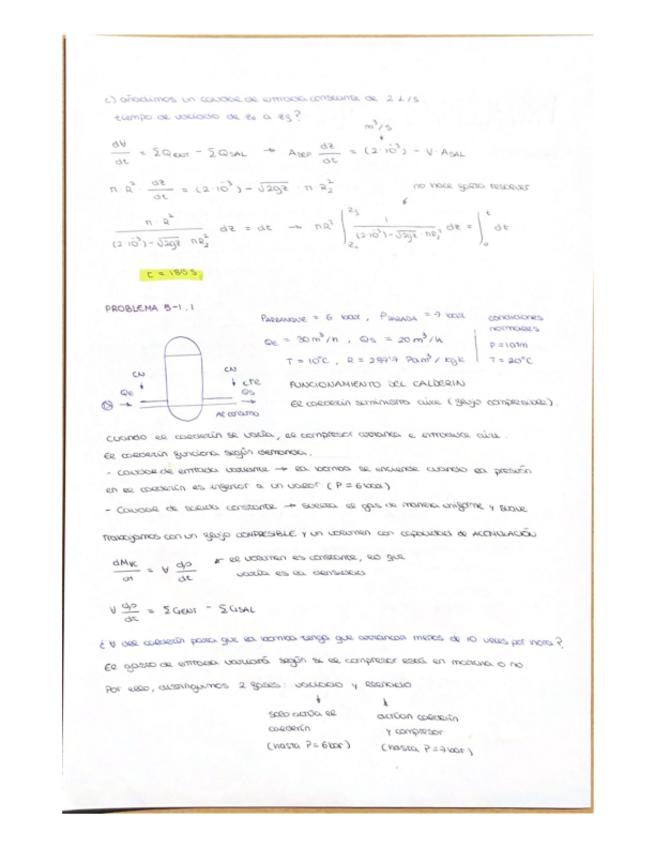 c) añadimos un caudal de entrada constante de 2 L/s
tiempo de vaciado de z0 a z3?
m³/s
dV/dt = ΣQENT - ΣQSAL → ADEP dz/dt = (2·10⁻³) - V·ASAL
π·R² · dz/dt = (2·10⁻³) - √2gz · π·R₂²
no hace falta resolver
π·R² / ((2·10⁻³) - √2gz πR₂²) dz = dt → πR² ∫ 1 / ((2·10⁻³) - √2gz πR₂²) dz = ∫ dt
t = 185 s
PROBLEMA 5-1.1
PARRANQUE = 6 bar, PPARADA = 7 bar
condiciones normales
QE = 30 m³/h, QS = 20 m³/h
P = 1atm
T = 10°C, R = 287'7 Pa m³/kg K
T = 20°C
CN
CN
cte
QE
QS
Al consumo
FUNCIONAMIENTO DEL CALDERIN
El calderín suministra aire (flujo compresible).
cuando el calderín se vacía, el compresor arranca e introduce aire.
El calderín funciona según demanda.
- Caudal de entrada variante → la bomba se enciende cuando la presión
en el calderín es inferior a un valor (P = 6 bar)
- Caudal de salida constante → suelta el gas de manera uniforme y suave
Trabajamos con un flujo COMPRESIBLE y un volumen con capacidad de ACUMULACIÓN
dMVC/dt = ∀ dρ/dt
el volumen es constante, lo que
varía es la densidad
∀ dρ/dt = ΣGENT - ΣGSAL
¿∀ del calderín para que la bomba tenga que arrancar menos de 10 veces por hora?
El gasto de entrada variará según si el compresor está en marcha o no
Por ello, distinguimos 2 fases: vaciado y llenado
solo actúa el
calderín
(hasta P=6bar)
actúan calderín
y compresor
(hasta P=7bar)